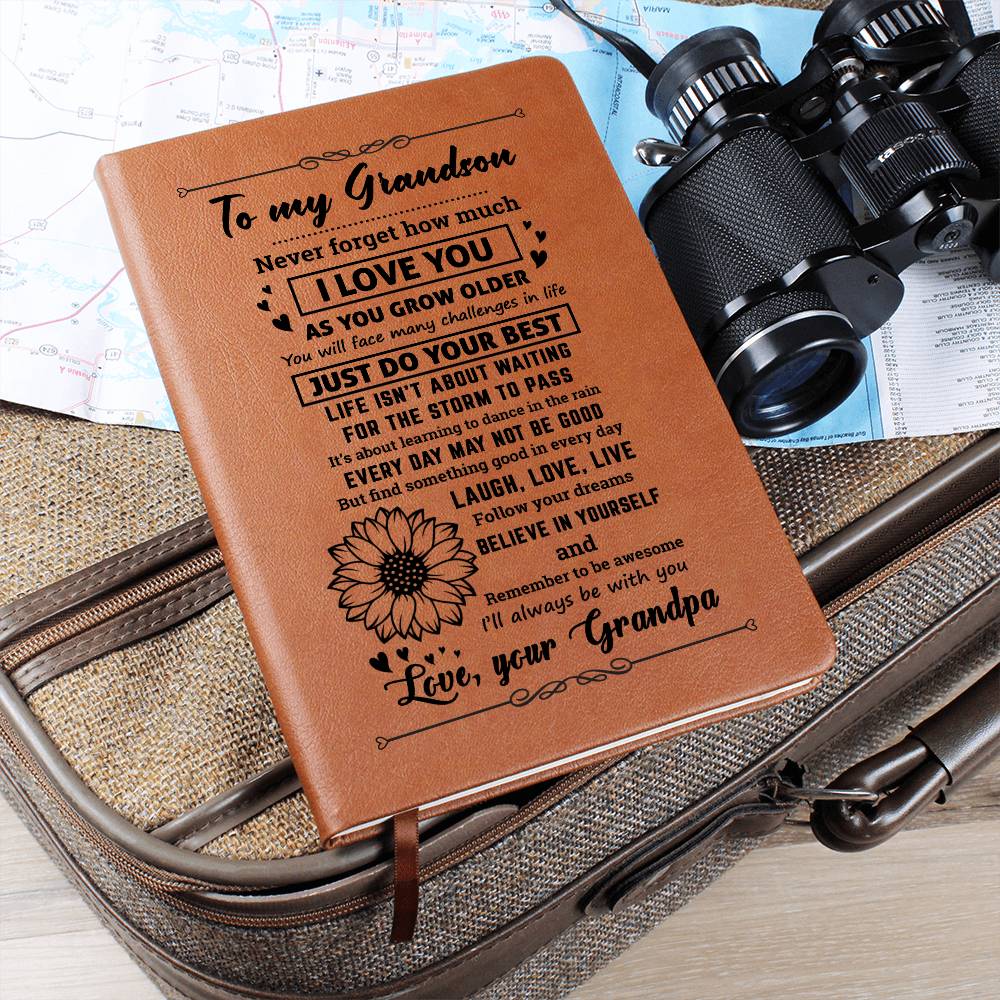 To my Grandson
Never forget how much
I LOVE YOU
AS YOU GROW OLDER
You will face many challenges in life
JUST DO YOUR BEST
LIFE ISN'T ABOUT WAITING
FOR THE STORM TO PASS
It's about learning to dance in the rain
EVERY DAY MAY NOT BE GOOD
But find something good in every day
LAUGH, LOVE, LIVE
Follow your dreams
BELIEVE IN YOURSELF
and
Remember to be awesome
I'll always be with you
Love, your Grandpa
tasco